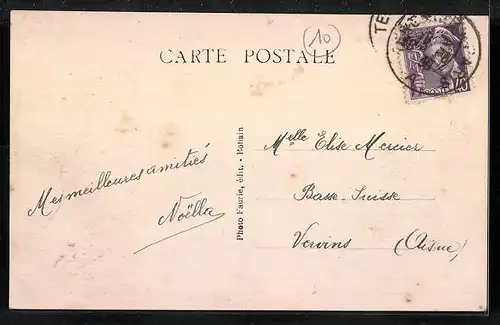 10
CARTE POSTALE
Mes meilleures amitiés
Noëlla
Photo Faurie, édit. - Bohain
Melle Elise Mercier
Basse-Suisse
Vervins (Aisne)
40